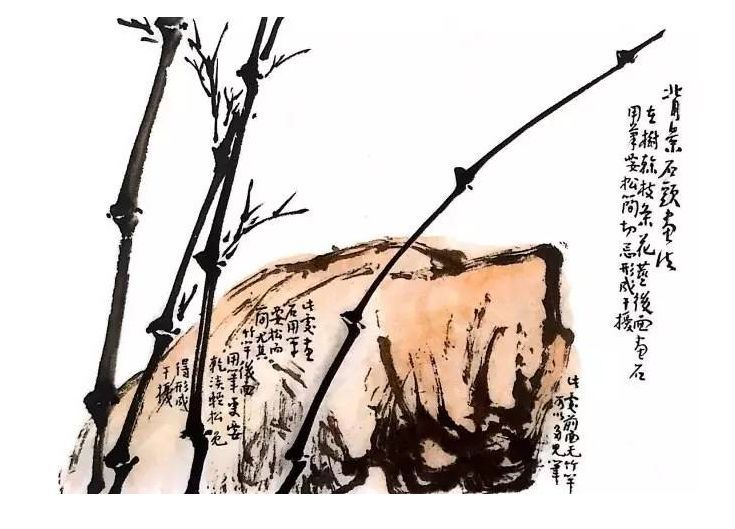 背景石頭画法
在樹幹枝条花莖後面画石
用筆要松簡切忌形成干擾
此處画
石用筆
要松而
簡尤其
竹竿後面
用筆更要
乾淡輕松免
得形成
干擾
此處前面无竹竿
可以多見筆